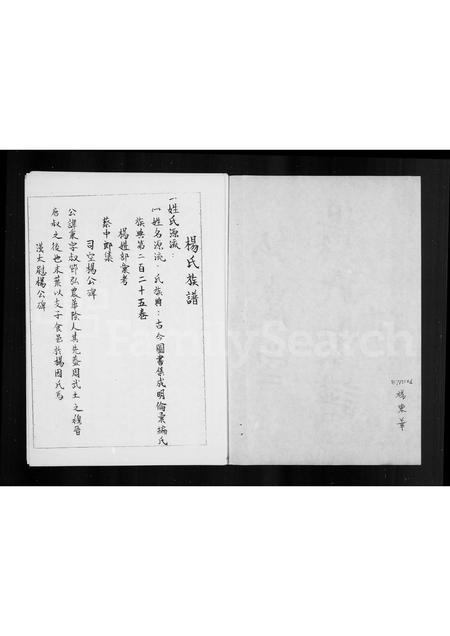 楊氏族譜
一姓氏源流:
(一)姓名源流·氏族典:古今圖書集成明倫彙編氏
族典第二百二十五卷
楊姓部彙考
蔡中郎集
司空楊公碑
公諱秉字叔節弘農華陰人其先蓋周武王之穆晉
唐叔之後也末葉以支子食邑於楊因氏焉
漢太尉楊公碑
楊東華
FamilySearch